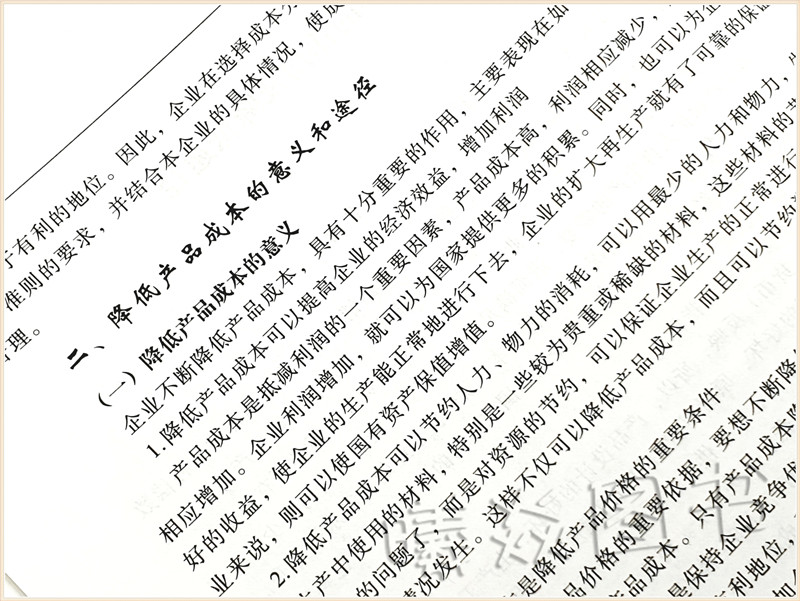 于有利的地位。因此，企业在选择成本
准则的要求，并结合本企业的具体情况，使成
管理。
二、降低产品成本的意义和途径
（一）降低产品成本的意义
企业不断降低产品成本，具有十分重要的作用，主要表现在如
1.降低产品成本可以提高企业的经济效益，增加利润
产品成本是抵减利润的一个重要因素，产品成本高，利润相应减少，
相应增加。企业利润增加，就可以为国家提供更多的积累。同时，也可以为企
好的收益，使企业的生产能正常地进行下去，企业的扩大再生产就有了可靠的保证
业来说，则可以使国有资产保值增值。
2.降低产品成本可以节约人力、物力的消耗，可以用最少的人力和物力，
生产中使用的材料，特别是一些较为贵重或稀缺的材料，这些材料的节
的问题了，而是对资源的节约，可以保证企业生产的正常进行
情况发生。这样不仅可以降低产品成本，而且可以节约
是降低产品价格的重要条件
品价格的重要依据，要想不断降
产品成本。只有产品成本降
是保持企业竞争优
有利地位，
曦好图书